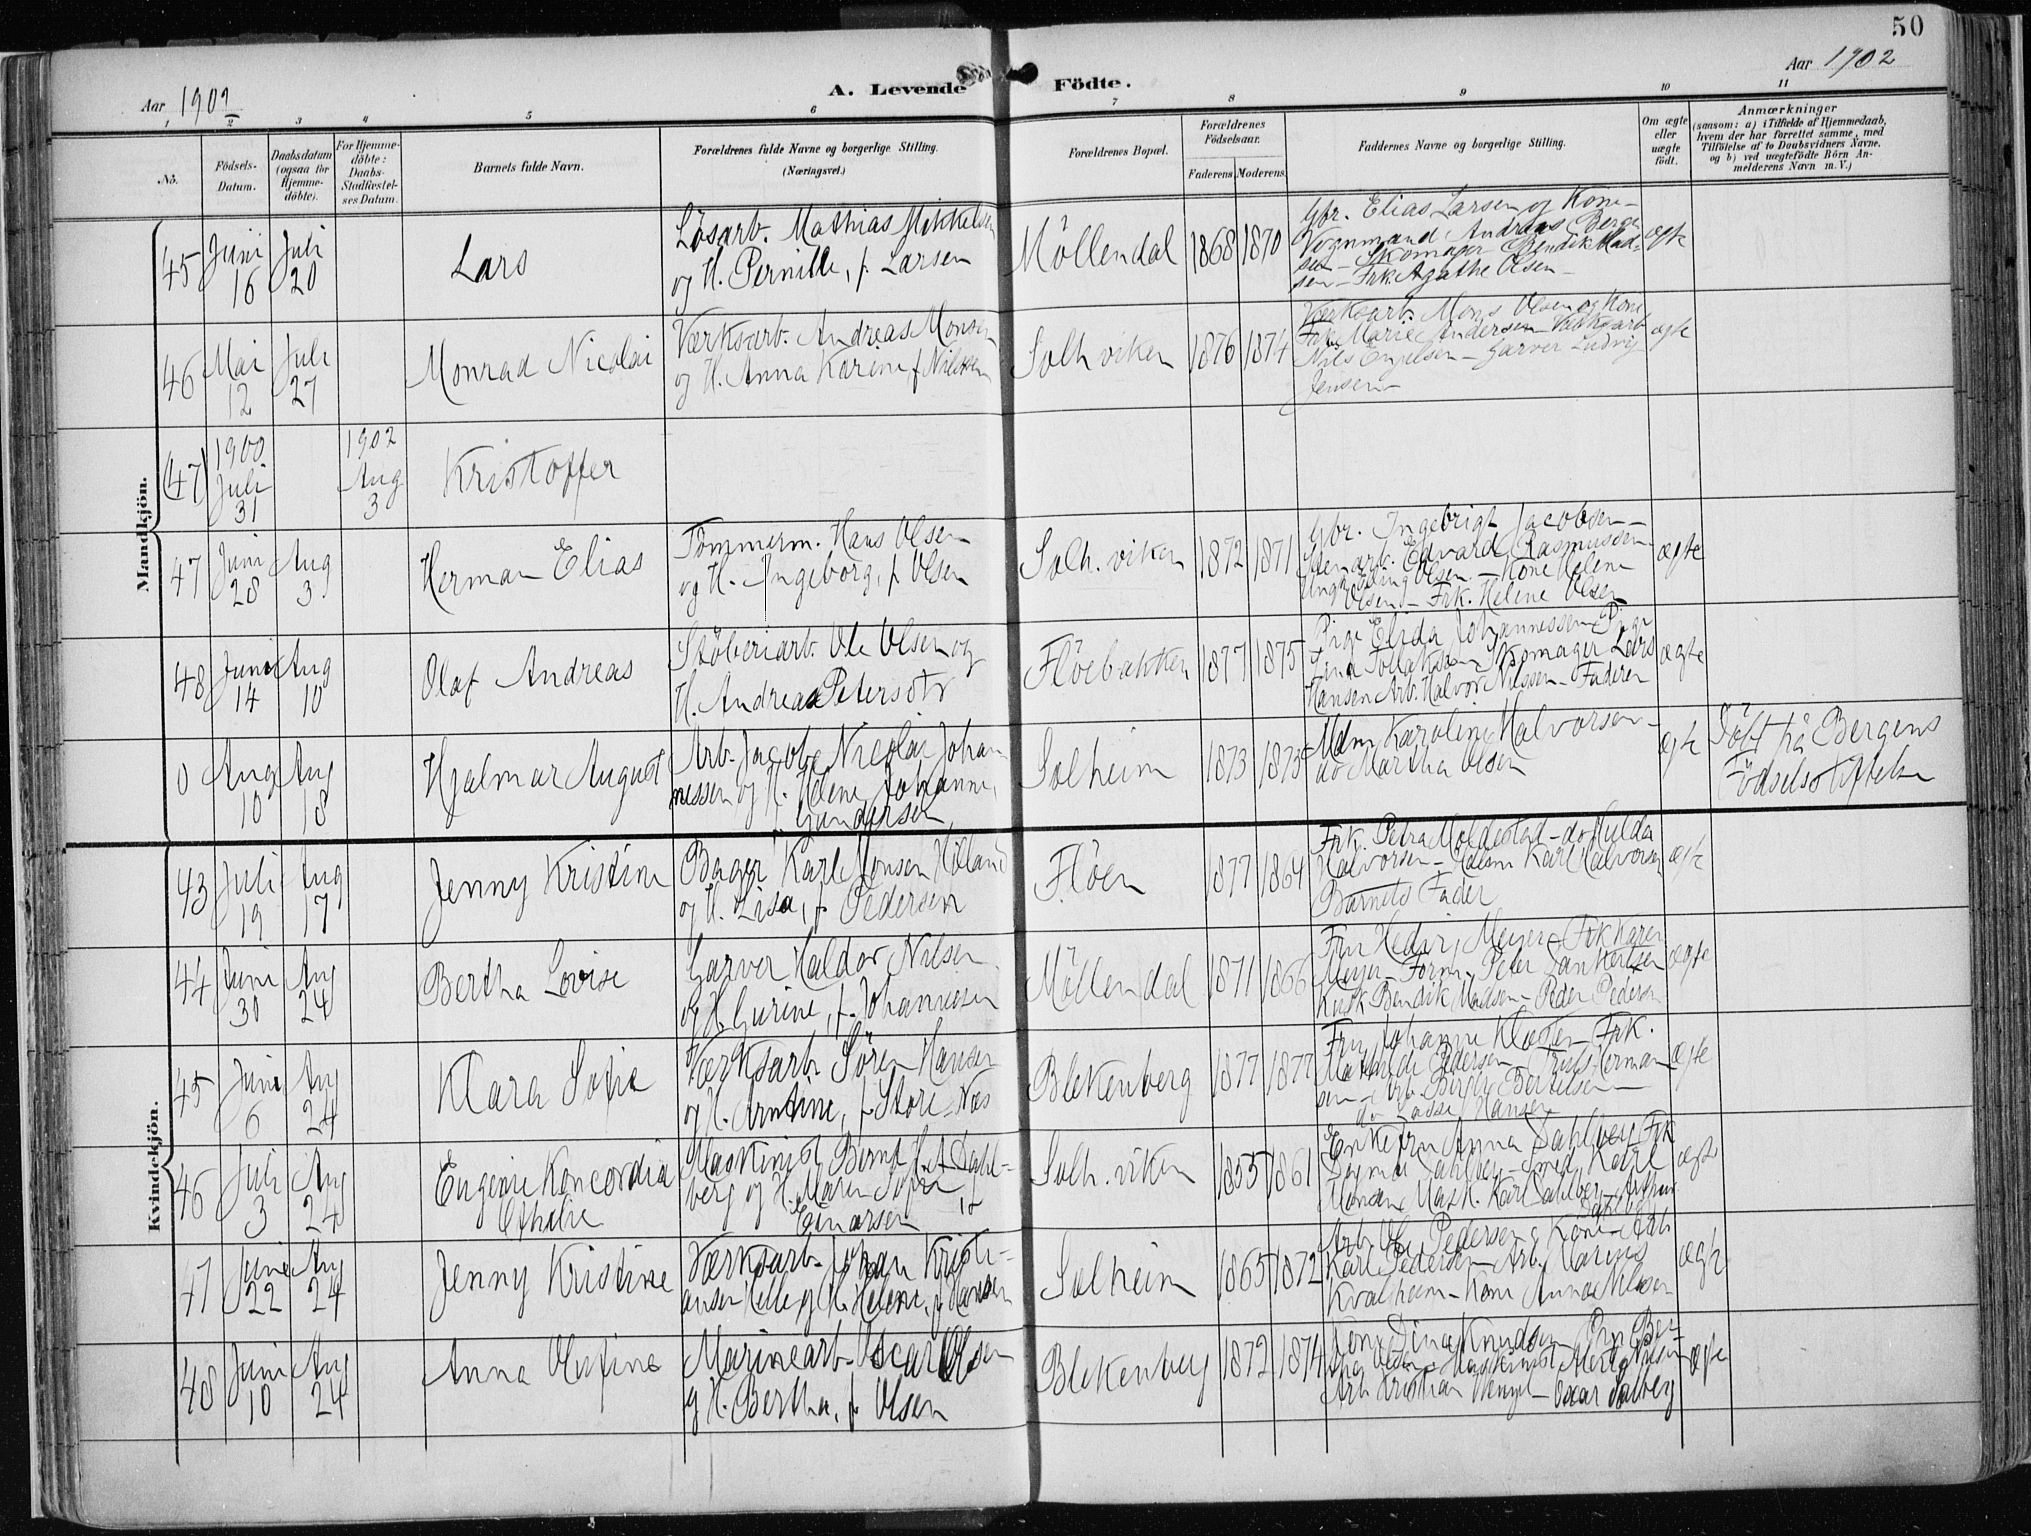 50
Aar 1902
A. Levende Födte.
Aar 1902
1 2 3 4 5 6 7 8 9 10 11
Nö.
Födsels-Datum.
Daabsdatum (ogsaa for Hjemmedöbte).
For Hjemmedöbte: Daabs-Stadfæstelses Datum.
Barnets fulde Navn.
Forældrenes fulde Navne og borgerlige Stilling. (Næringsvei.)
Forældrenes Bopæl.
Forældrenes Födselsaar.
Faderens Moderens
Faddernes Navne og borgerlige Stilling.
Om ægte eller uægte födt.
Anmærkninger
(saasom: a) i Tilfælde af Hjemmedaab, hvem der har forrettet samme, med Tilföielse af to Daabsvidners Navne, og b) ved uægtefödte Börn Anmelderens Navn m. V.)
Mandkjön.
45 Juni 16 Juli 20 Lars
Lösarb. Mathias Mikkelsen
og H. Pernille, f. Larsen
Möllendal 1868 1870
Gbr. Elias Larsen og Kone -
Vognmand Andreas Berge
sen - Skomager Bendik Mad-
sen - Frk. Agathe Olsen -
ægte
46 Mai 12 Juli 27 Monrad Nicolai
Værksarb. Andreas Monsen
og H. Anna Karine f. Nilssen
Solh.viken 1876 1874
Værksarb. Mons Olsen og Kone
Frk. Marie Andersen - Værksarb
Nils Engelsen - Garver Ludvig
Jensen -
ægte
(47) 1900 Juli 31 1902 Aug 3 Kristoffer
47 Juni 28 Aug 3 Herman Elias
Tömmerm. Hans Olsen
og H. Ingeborg, f. Olsen
Solh.viken 1872 1871
Gbr. Ingebrigt Jacobsen -
Stenarb. Edvard Rasmussen
Ungk. Olsen - Kone Helene
Olsen - Frk. Helene Olsen
ægte
48 Juni 14 Aug 10 Olaf Andreas
Stöberiarb. Ole Olsen og
H. Andrea Petersdtr
Flöebakken 1877 1875
Pige Elida Johannessen Pige
Lina Tollaksen Skomager Lars
Hansen Arb. Halvor Nilssen - Faderen
ægte
0 Aug 10 Aug 18 Hjalmar August
Arb. Jacob Nicolai Johan
nessen og H. Helene Johanne,
f. Gundersen
Solheim 1873 1873
Mdm Karoline Halvorsen -
do Martha Olsen
ægte
Födt på Bergens
Födselsstiftelse
Kvindekjön.
43 Juli 19 Aug 17 Jenny Kristine
Bager Karl Monsen Hölland
og H. Lisa, f. Pedersen
Flöen 1877 1864
Frk. Petra Moldestad - do Hulda
Halvorsen - Karl Halvorsen
Barnets Fader
ægte
44 Juni 30 Aug 24 Bertha Lovise
Garver Haldor Nilsen
og H. Gurine, f. Johannesen
Möllendal 1871 1866
Fru Hedvig Meyer - Frk Karen
Meyer - Form. Peter Dankertsen
Kusk Bendik Madsen - Peder Pedersen
ægte
45 Juni 6 Aug 24 Klara Sofie
Værksarb. Sören Hansen
og H. Arntine, f. Store-Næs
Blekenberg 1877 1877
Fru Johanne Kloster - Frk.
Mathilde Pedersen - Herman
sen - Arb. Birger Bertelsen
do Lasse Hansen
ægte
46 Juli 3 Aug 24 Eugenie Koncordia
Othalie
Maskinist Bernt Dahl-
berg og H. Maren Sofie
Einarsen
Solh.viken 1855 1861
Enkefru Anna Dahlberg Frk
Dagmar Dahlberg - Smed Karl
Monsen Mask. Karl Dahlberg - Arthur
Dahlberg
ægte
47 Juni 22 Aug 24 Jenny Kristine
Værksarb. Johan Kristi-
ansen Helle og H. Helene, f. Hansen
Solheim 1865 1872
Arb. Ole Pedersen og Kone - Arb
Karl Pedersen Arb. Marius
Kvalheim - Kone Anna Nilsen
ægte
48 Juni 10 Aug 24 Anna Olufine
Marinearb. Oscar Olsen
og H. Bertha, f. Olsen
Blekenberg 1872 1874
Kone Dina Knudsen Ber-
tha Olsen - Maskinist Nilsen
Arb Kristian - Oscar Salberg
ægte